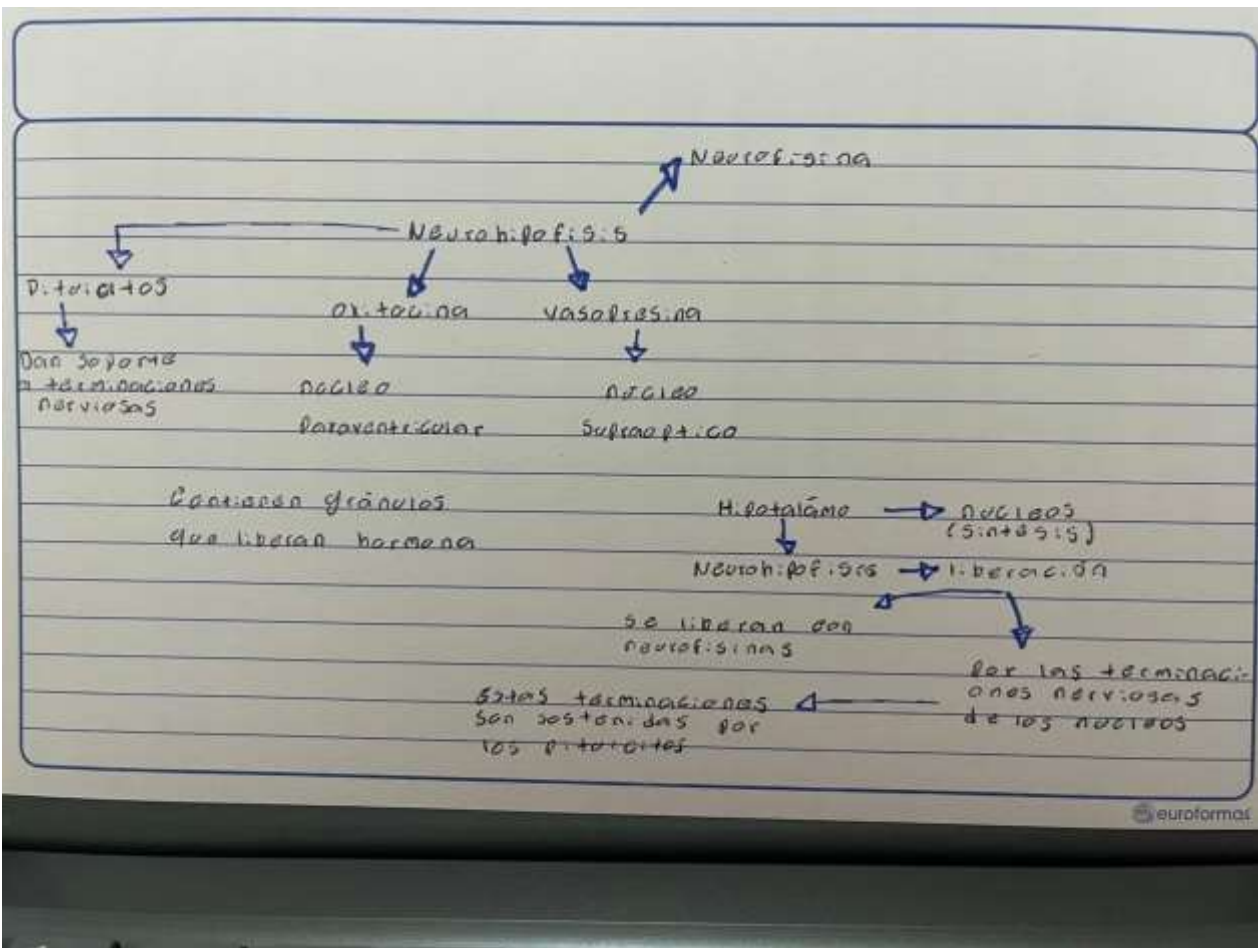 Neurofisina
Neurohipofisis
Pituicitos
Oxitocina
vasopresina
Dan soporte
a terminaciones
nerviosas
nucleo
Paraventricular
nucleo
Supraoptico
Contienen gránulos
que liberan hormona
Hipotalámo
nucleos
(sintesis)
Neurohipofisis
liberación
se liberan con
neurofisinas
Por las terminaci-
ones nerviosas
de los nucleos
Estas terminaciones
son sostenidas por
los pituicitos
euroformas